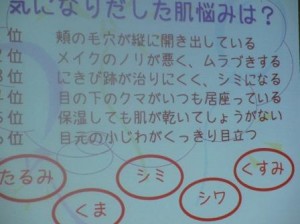 気になりだした肌悩みは?
位 頬の毛穴が縦に開き出している
2 位 メイクのノリが悪く、ムラづきする
3 位 にきび跡が治りにくく、シミになる
4 位 目の下のクマがいつも居座っている
5 位 保湿しても肌が乾いてしょうがない
位 目元の小じわがくっきり目立つ
たるみ
シミ
くすみ
くま
シワ